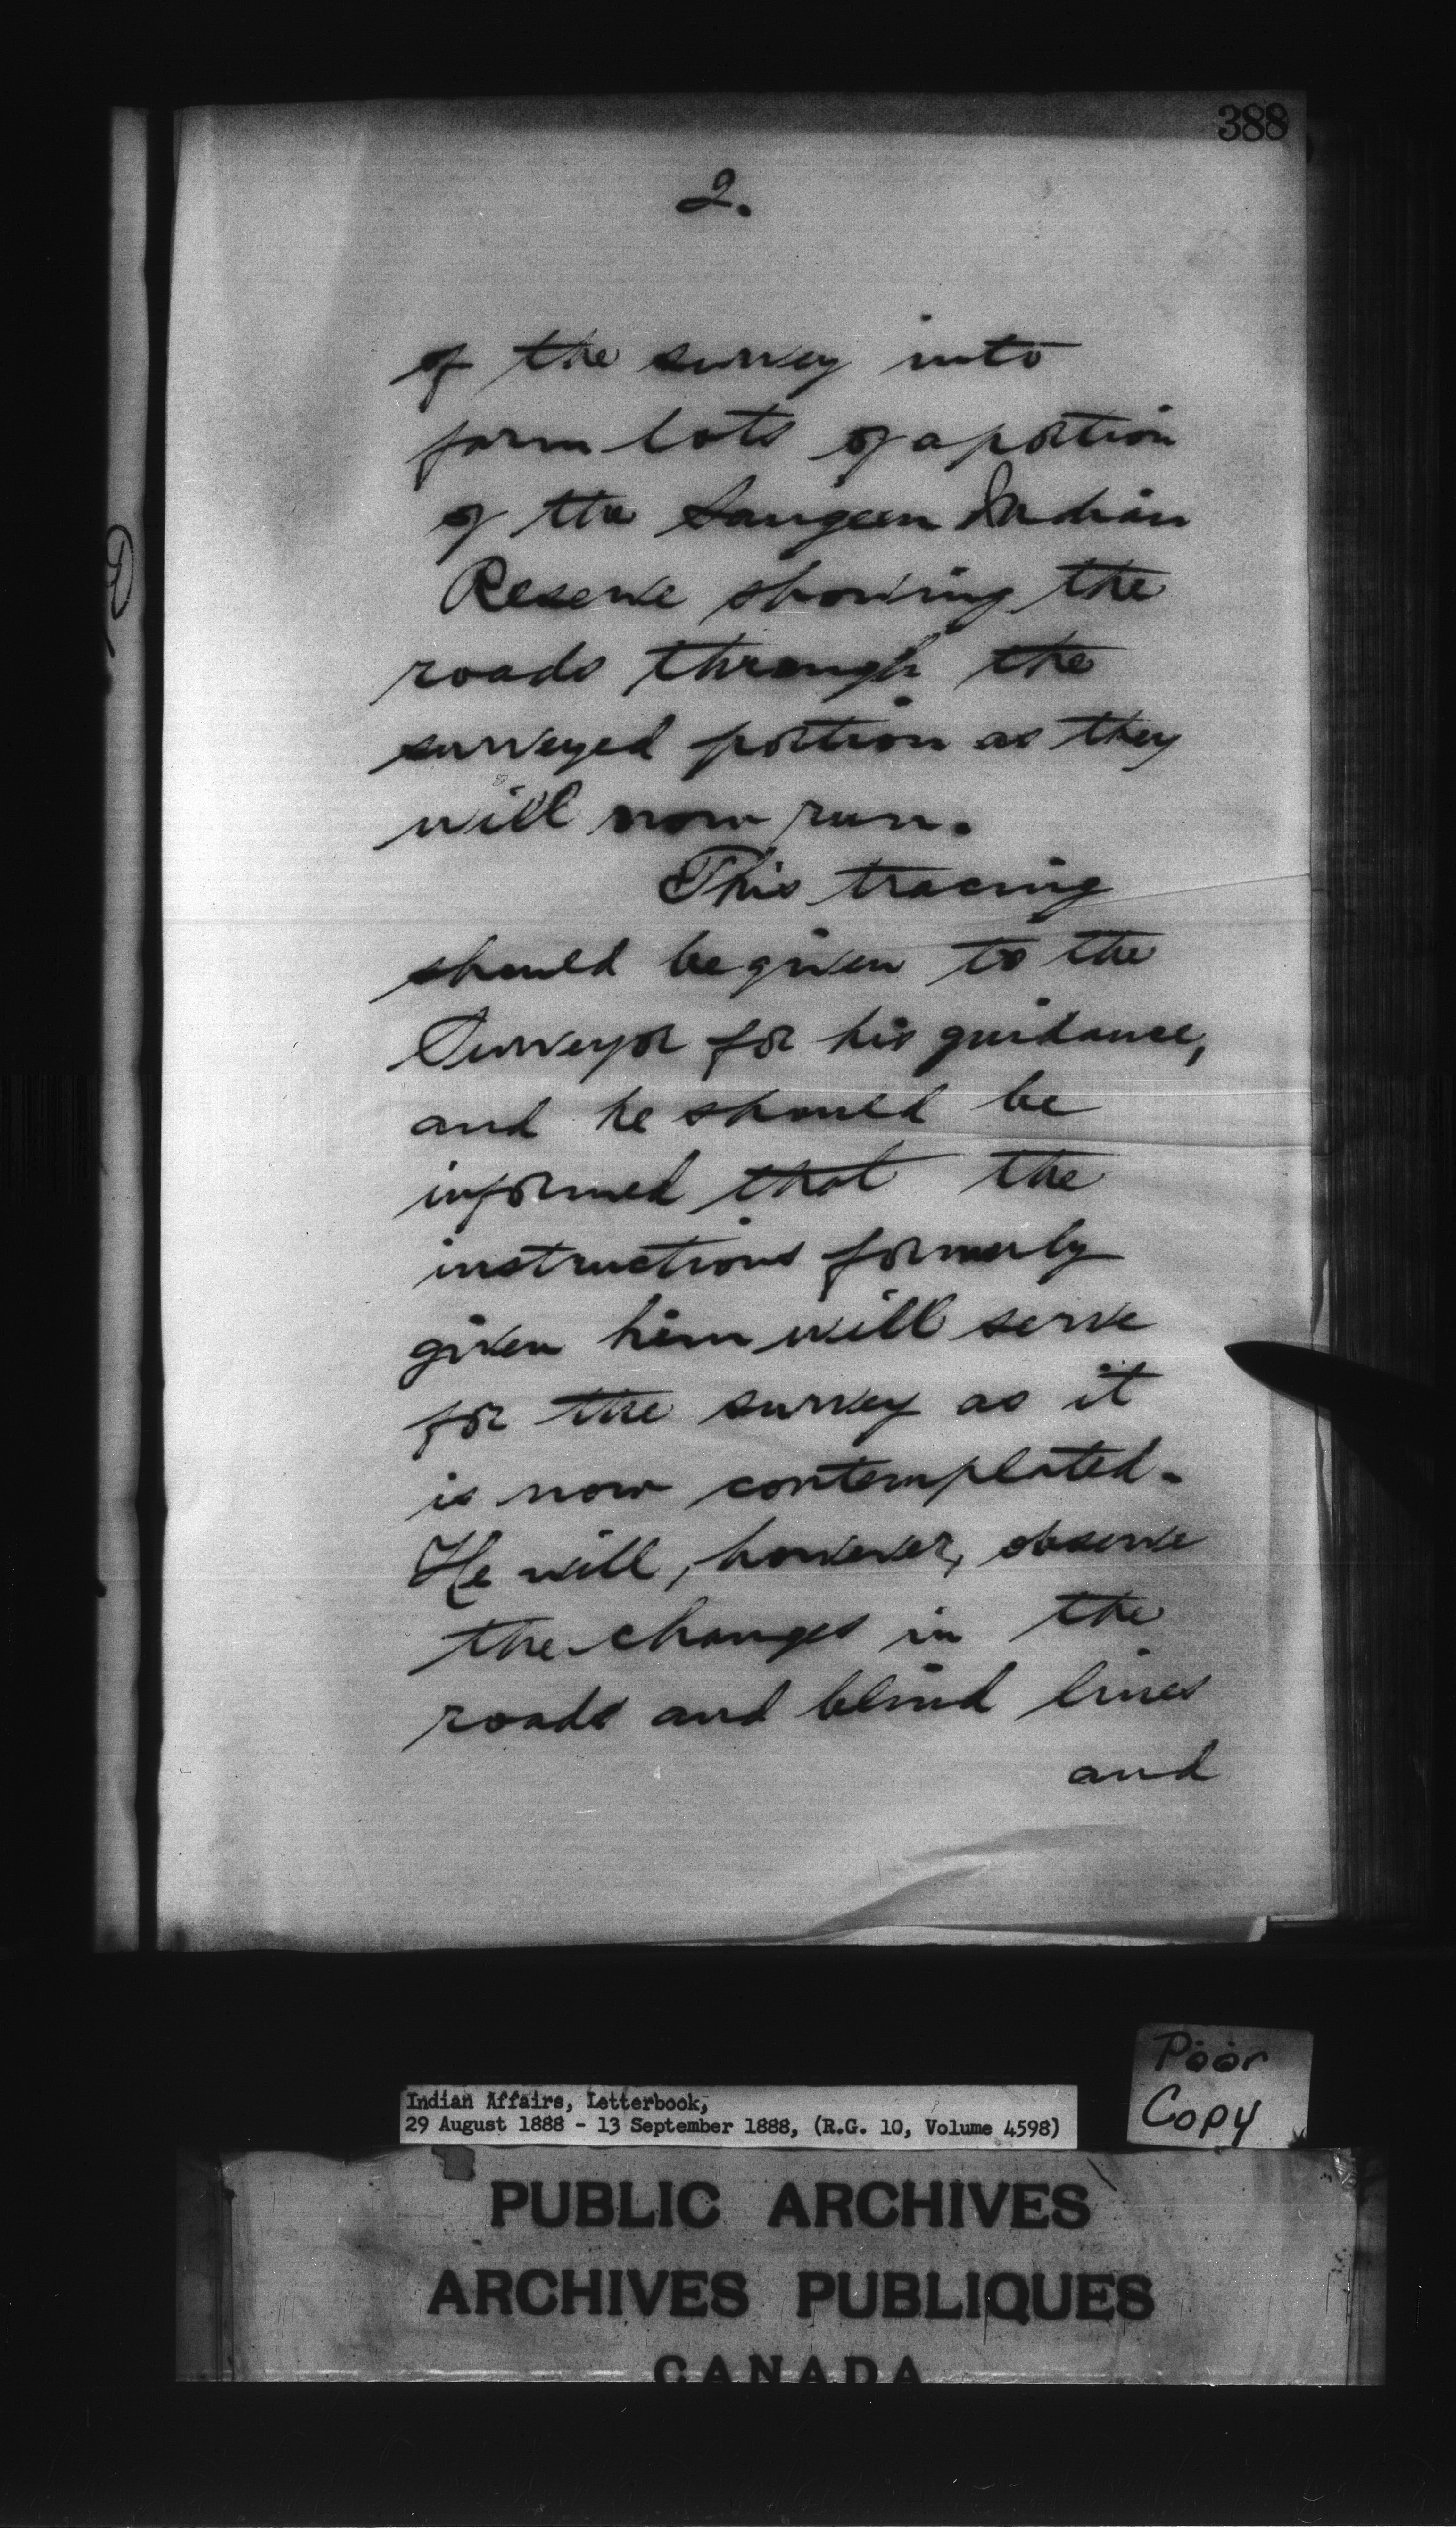 388
2.
of the survey into
farm lots of a portion
of the Saugeen Indian
Reserve showing the
roads through the
surveyed portion as they
will now run.
This tracing
should be given to the
Surveyor for his guidance,
and he should be
informed that the
instructions formerly
given him will serve
for the survey as it
is now contemplated.
He will, however, observe
the changes in the
roads and blind lines
and
Poor
Copy
Indian Affairs, Letterbook,
29 August 1888 - 13 September 1888, (R.G. 10, Volume 4598)
PUBLIC ARCHIVES
ARCHIVES PUBLIQUES
CANADA